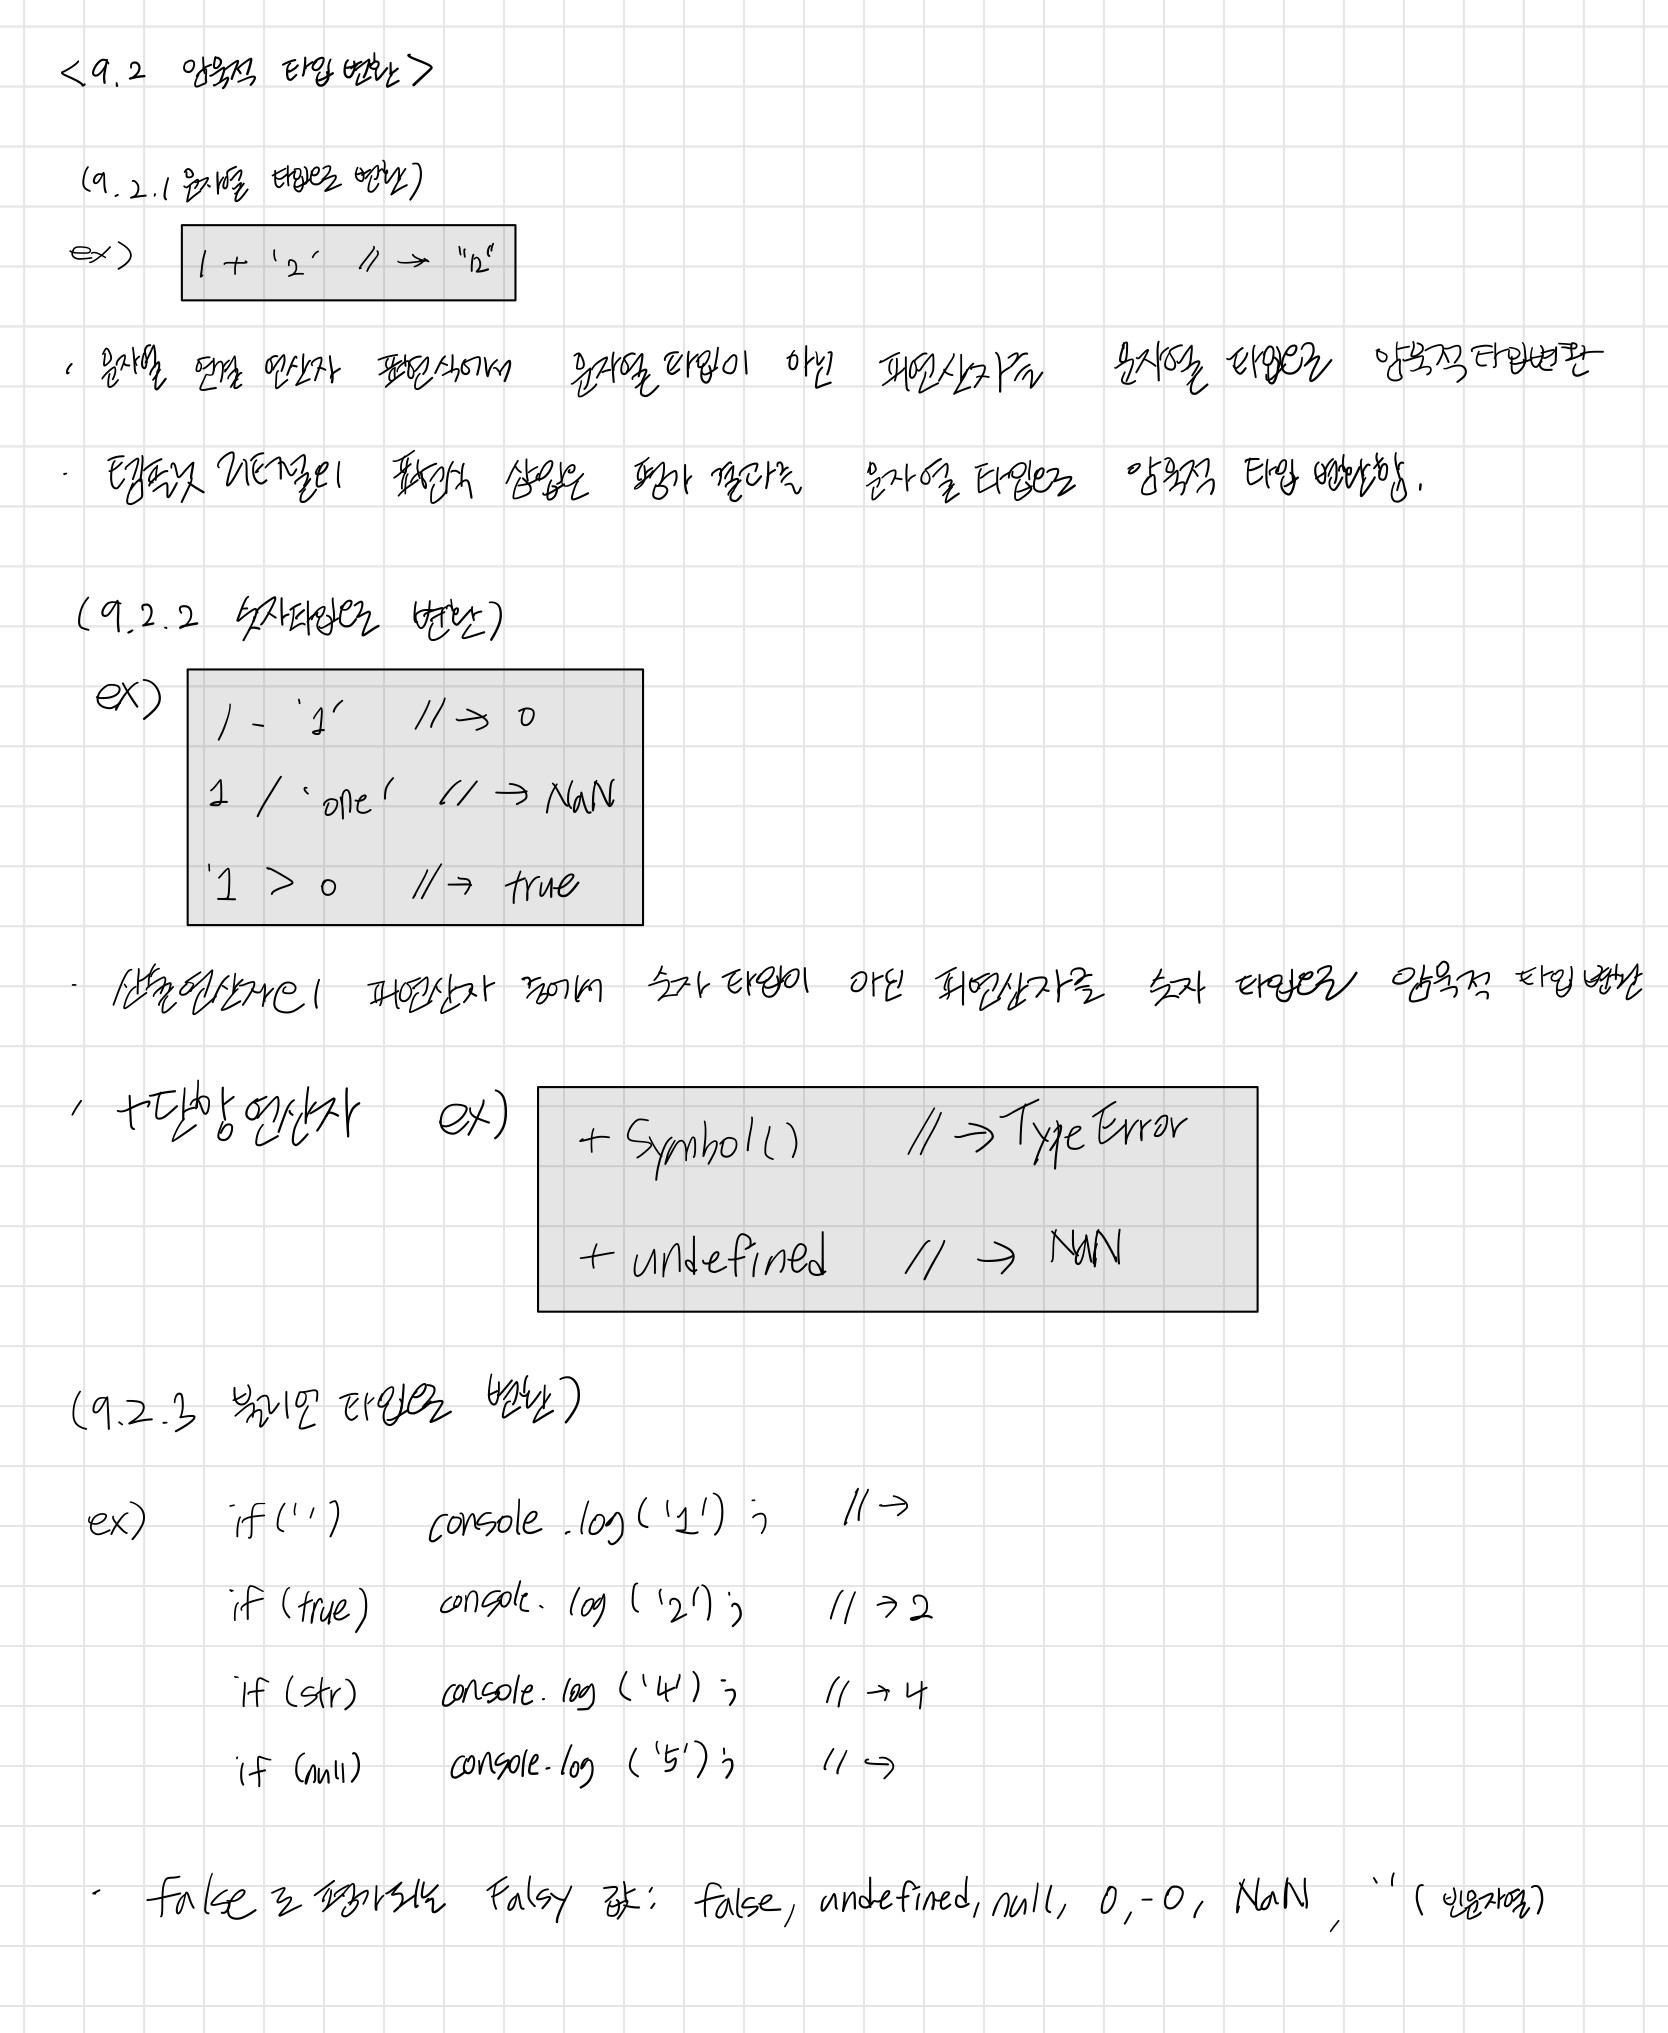 <9.2 암묵적 타입 변환>
(9.2.1 문자열 타입으로 변환)
ex) 1 + '2' // → "12"
· 문자열 연결 연산자 표현식에서 문자열 타입이 아닌 피연산자를 문자열 타입으로 암묵적 타입변환
· 템플릿 리터럴의 표현식 삽입은 평가 결과를 문자열 타입으로 암묵적 타입 변환함.
(9.2.2 숫자타입으로 변환)
ex) 1 - '1' // → 0
1 / 'one' // → NaN
'1 > 0 // → true
· 산술연산자의 피연산자 중에서 숫자 타입이 아닌 피연산자를 숫자 타입으로 암묵적 타입 변환
· +단항 연산자 ex) + Symbol() // → TypeError
+ undefined // → NaN
(9.2.3 불리언 타입으로 변환)
ex) if('') console.log('1'); // →
if (true) console.log('2'); // → 2
if (str) console.log('4'); // → 4
if (null) console.log('5'); // →
· false로 평가되는 Falsy 값: false, undefined, null, 0, -0, NaN, '' (빈문자열)